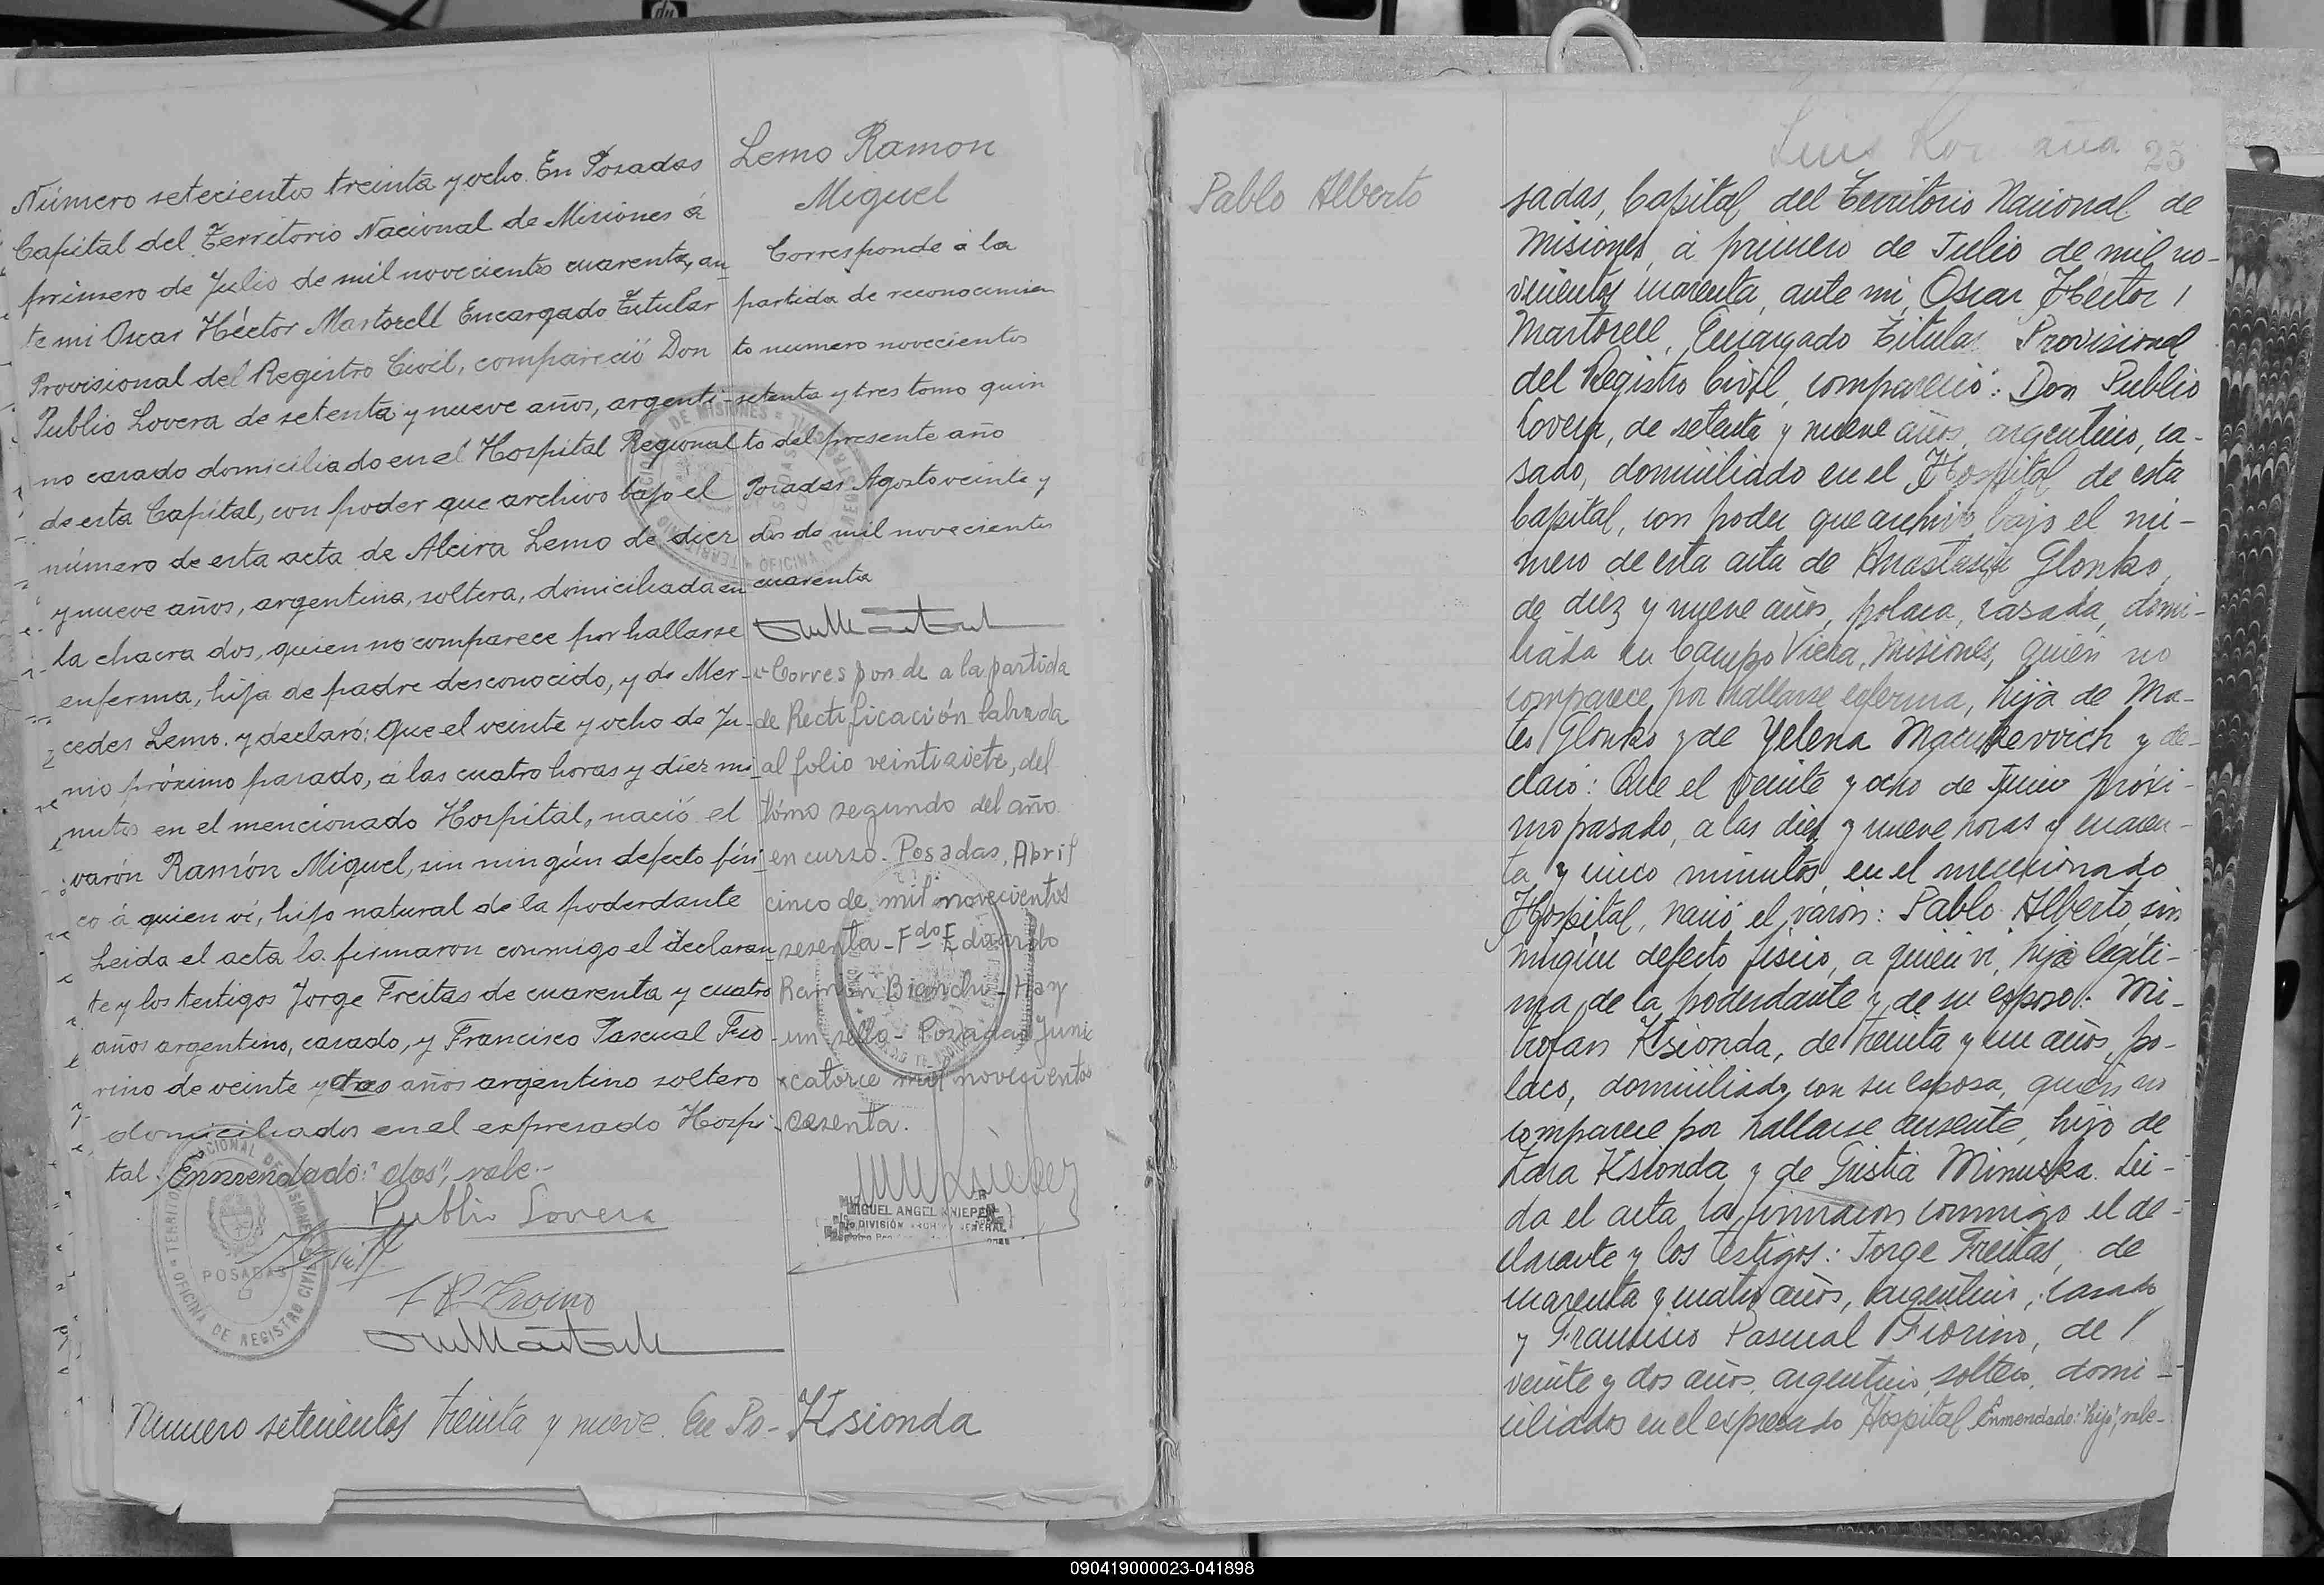 Número setecientos treinta y ocho. En Posadas
Capital del Territorio Nacional de Misiones á
primero de Julio de mil novecientos cuarenta, an
te mi Oscar Héctor Martorell Encargado Titular
Provisional del Registro Civil, compareció Don
Publio Lovera de setenta y nueve años, argenti-
no casado domiciliado en el Hospital Regional
de esta Capital, con poder que archivo bajo el
número de esta acta de Alcira Lemo de diez
y nueve años, argentina, soltera, domiciliada en
la chacra dos, quien no comparece por hallarse
enferma, hija de padre desconocido, y de Mer-
cedes Lemo. y declaró: Que el veinte y ocho de Ju-
nio próximo pasado, á las cuatro horas y diez mi-
nutos en el mencionado Hospital, nació el
varón Ramón Miguel, sin ningún defecto fisi
co á quien ví, hijo natural de la poderdante
Leida el acta la firmaron conmigo el declaran-
te y los testigos Jorge Freitas de cuarenta y cuatro
años argentino, casado, y Francisco Pascual Fio-
rino de veinte y dos años argentino soltero
domiciliados en el expresado Hospi-
tal. Enmendado: "dos", vale.-
Publio Lovera
POSADAS
OFICINA DE REGISTRO CIVIL
Número setecientos treinta y nueve. En Po-
Lemo Ramon
Miguel
Corresponde á la
partida de reconocimien
to numero novecientos
setenta y tres tomo quin
to del presente año
Posadas Agosto veinte y
dos de mil novecientos
cuarenta
Corresponde a la partida
de Rectificación labrada
al folio veintisiete, del
tómo segundo del año
en curso. Posadas, Abril
cinco de mil novecientos
sesenta - Fdo Eduardo
Ramón Bianchi - Hay
un sello - Posadas Junio
catorce mil novecientos
sesenta.
MIGUEL ANGEL KNIEPER
DIVISIÓN ARCHIVO GENERAL
Ksionda
Pablo Alberto
25
sadas, Capital del Territorio Nacional de
Misiones, á primero de Julio de mil no-
vecientos cuarenta, ante mi, Oscar Héctor
Martorell, Encargado Titular Provisional
del Registro Civil, compareció: Don Publio
Lovera, de setenta y nueve años, argentino, ca-
sado, domiciliado en el Hospital de esta
Capital, con poder que archivo bajo el nú-
mero de esta acta de Anastasia Glonko,
de diez y nueve años, polaca, casada, domi-
liada en Campo Viera, Misiones, quien no
comparece por hallarse enferma, hija de Ma-
teo Glonko y de Yelena Macukevvich y de-
claró: Que el veinte y ocho de Junio próxi-
mo pasado, a las diez y nueve horas y cuaren-
ta y cinco minutos en el mencionado
Hospital, nació el varón: Pablo Alberto, sin
ningún defecto fisico, a quien vi, hijo legíti-
mo de la poderdante y de su esposo: Mi-
trofan Ksionda, de treinta y un años, po-
laco, domiciliado con su esposa, quien no
comparece por hallarse ausente, hijo de
Zara Ksionda y de Gristia Minuska. Lei-
da el acta la firmaron conmigo el de-
clarante y los testigos: Jorge Freitas, de
cuarenta y cuatro años, argentino, casado
y Francisco Pascual Fiorino, de
veinte y dos años, argentino, soltero, domi-
ciliados en el expresado Hospital. Enmendado: "hijo", vale-
090419000023-041898